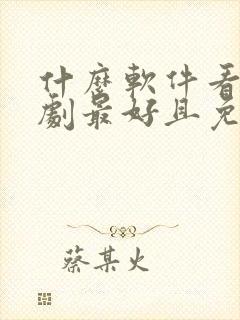 什麼軟件看
劇最好且免
蔡某火